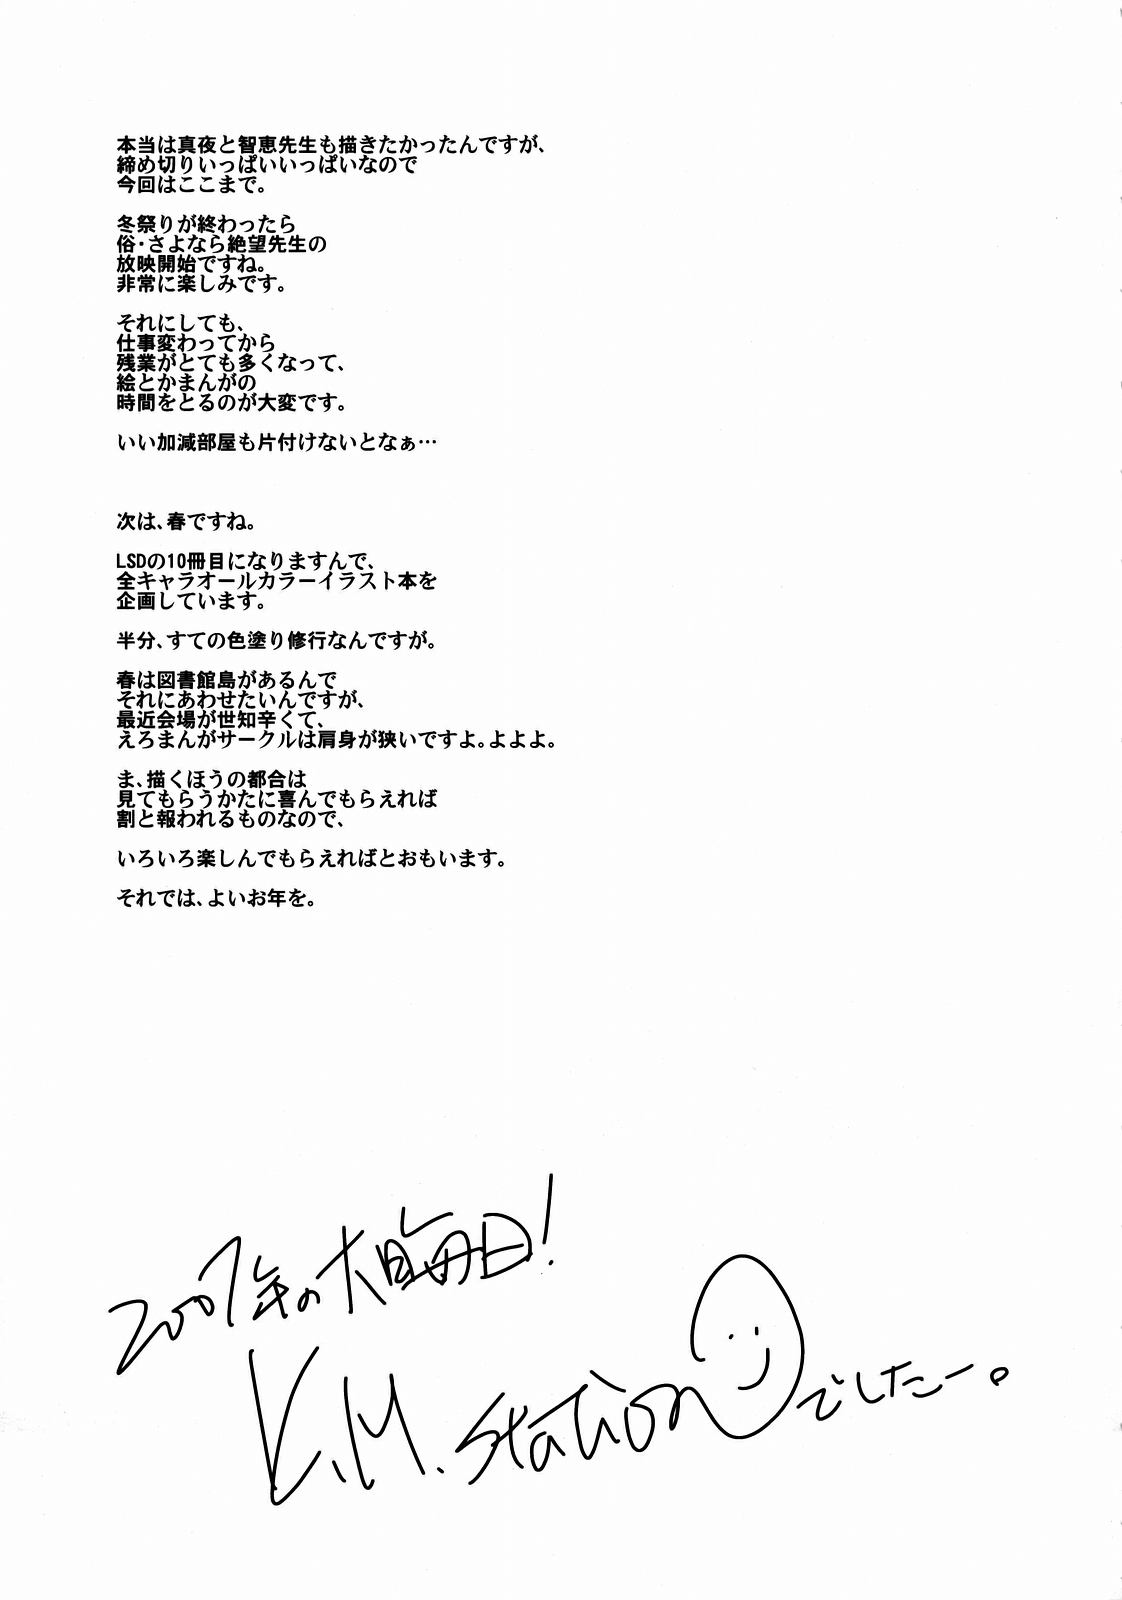 本当は真夜と智恵先生も描きたかったんですが、
締め切りいっぱいいっぱいなので
今回はここまで。
冬祭りが終わったら
俗・さよなら絶望先生の
放映開始ですね。
非常に楽しみです。
それにしても、
仕事変わってから
残業がとても多くなって、
絵とかまんがの
時間をとるのが大変です。
いい加減部屋も片付けないとなぁ…
次は、春ですね。
LSDの10冊目になりますんで、
全キャラオールカラーイラスト本を
企画しています。
半分、すての色塗り修行なんですが。
春は図書館島があるんで
それにあわせたいんですが、
最近会場が世知辛くて、
えろまんがサークルは肩身が狭いですよ。よよよ。
ま、描くほうの都合は
見てもらうかたに喜んでもらえれば
割と報われるものなので、
いろいろ楽しんでもらえればとおもいます。
それでは、よいお年を。
2007年の大晦日!
K.M.Station でしたー。